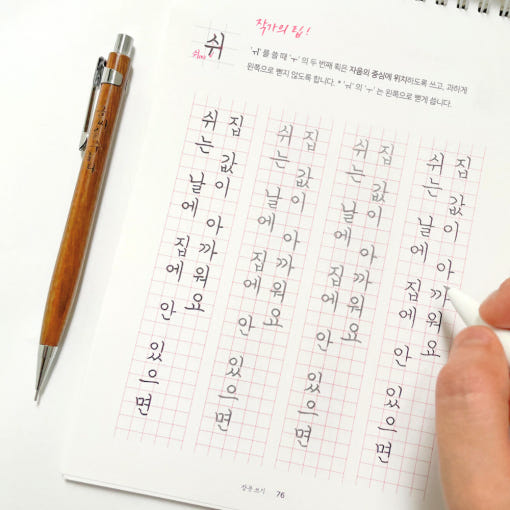 작가의 팁!
쉬
'ㅟ'를 쓸 때 'ㅜ'의 두 번째 획은 자음의 중심에 위치하도록 쓰고, 과하게
왼쪽으로 뻗지 않도록 합니다. * 'ㅝ'의 'ㅜ'는 왼쪽으로 뻗게 씁니다.
쉬는 날에 집에 안 있으면
집값이 아까워요
쉬는 날에 집에 안 있으면
집값이 아까워요
쉬는 날에 집에 안 있으면
집값이 아까워요
쉬는 날에 집에 안 있으면
집값이 아까워요
쓰기 76